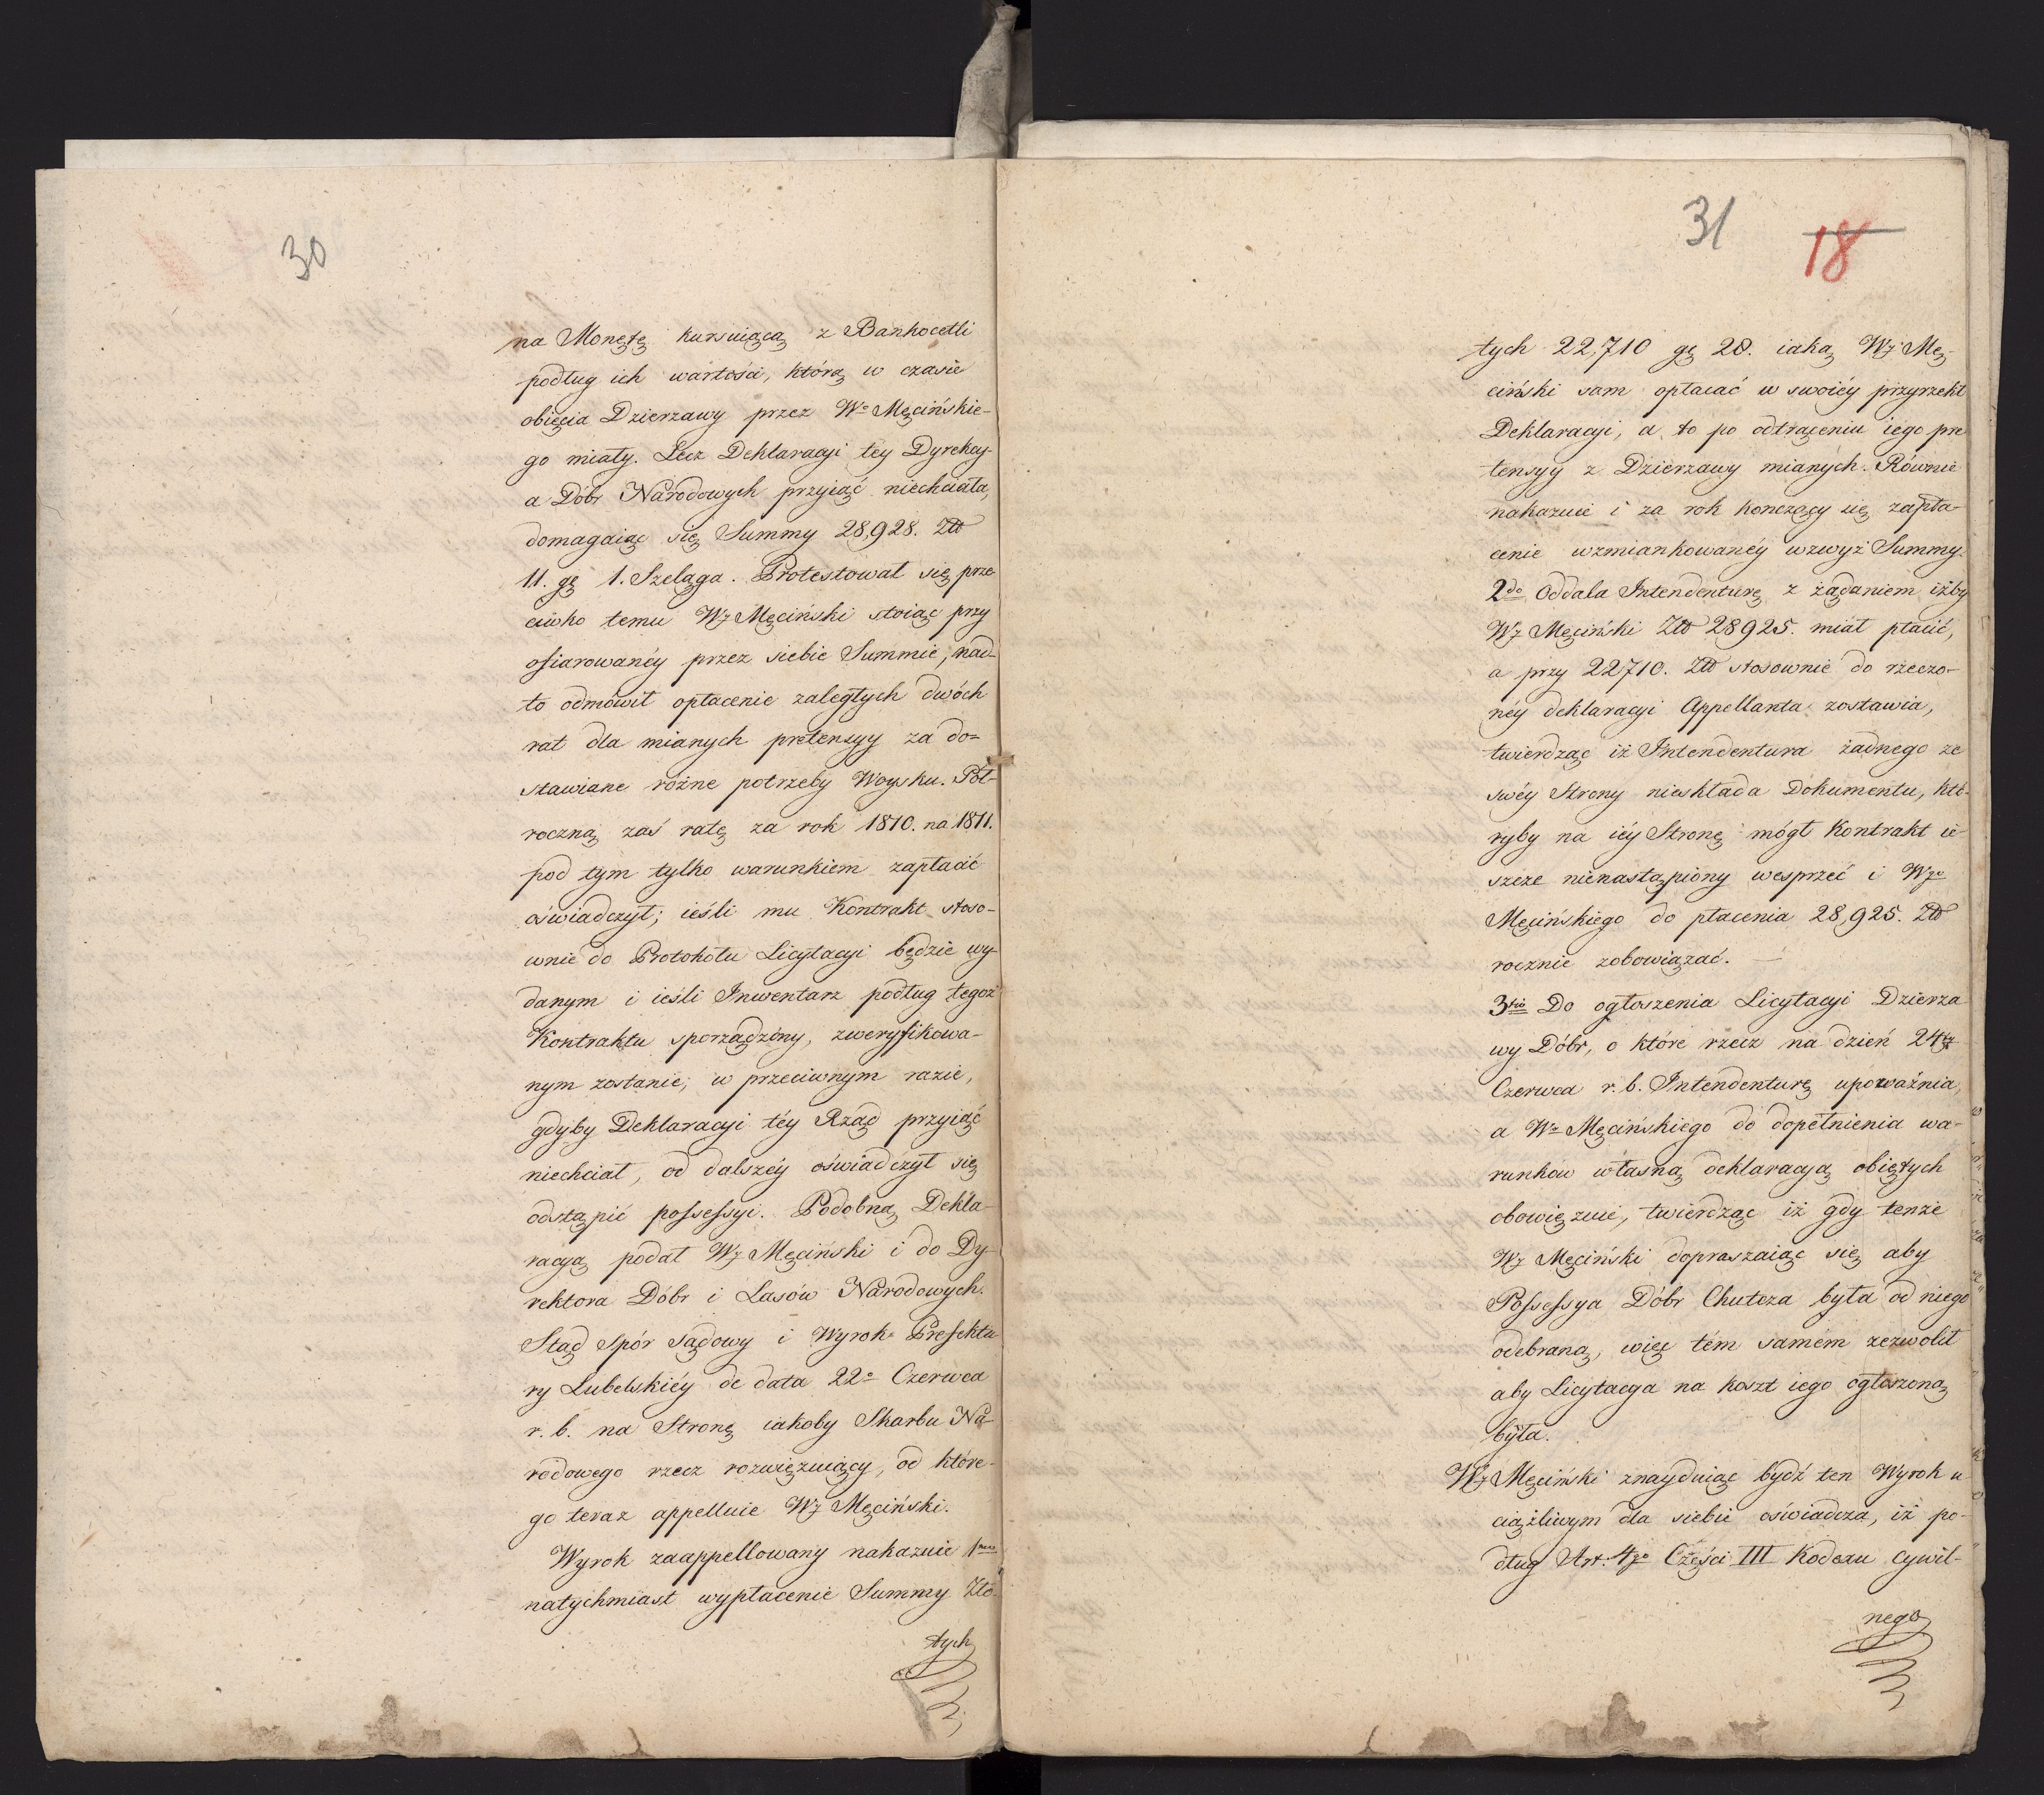 30
na Monętę kursuiącą z Bankocetli
podług ich wartości, którą w czasie
obięcia Dzierzawy przez Wo Męcińskie-
go miały. Lecz Deklaracyi tey Dyrekcy-
a Dóbr Narodowych przyiąć niechciała,
domagaiąc się Summy 28,928. Zło
11. gę 1. Szeląga. Protestował się prze-
ciwko temu Wy Męciński stoiąc przy
ofiarowanéy przez siebie Summie, nad-
to odmówił opłacenie zaległych dwóch
rat dla mianych pretensyy za do-
stawiane różne potrzeby Woysku. Pół-
roczną zaś ratę za rok 1810. na 1811.
pod tym tylko warunkiem zapłacić
oświadczył; ieśli mu Kontrakt stoso-
wnie do Protokółu Licytacyi będzie wy-
danym i ieśli Inwentarz podług tegoż
Kontraktu sporządzóny, zweryfikowa-
nym zostanie; w przeciwnym razie,
gdyby Deklaracyi téy Rząd przyiąć
niechciał, od dalszéy oświadczył się
odstąpić possessyi. Podobną Dekla-
racyą podał Wy Męciński i do Dy-
rektora Dóbr i Lasów Narodowych.
Stąd spór sądowy i Wyrok Prefektu-
ry Lubelskiéy de data 22o Czerwca
r. b. na Stronę iakoby Skarbu Na-
rodowego rzecz rozwięzuiący, od które-
go teraz appelluie Wy Męciński.
Wyrok zaappellowany nakazuie 1mo
natychmiast wypłacenie Summy Zło-
tych
31
18
tych 22,710 gę 20. iaką Wy Mę-
ciński sam opłacać w swoiéy przyrzekł
Deklaracyi, a to po odtrąceniu iego pre
tensyy z Dzierzawy mianych. Równie
nakazuie i za rok konczący się zapła-
cenie wzmiankowanéy wzwyż Summy.
2do Oddala Intendenturę z żądaniem iżby
Wy Męciński Zło 28925. miał płacić,
a przy 22710. Zło stosownie do rzeczo-
néy deklaracyi Appellanta zostawia,
twierdząc iż Intendentura żadnego ze
swéy Strony nieskłada Dokumentu, któ-
ryby na iéy Stronę mógł Kontrakt ie-
szcze nienastąpióny wesprzeć i Wgo
Męcińskiego do płacenia 28,925. Zło
rocznie zobowiązać.
3tio Do ogłoszenia Licytacyi Dzierza
wy Dóbr, o które rzecz na dzień 24ty
Czerwca r. b. Intendenturę upoważnia,
a Wo Męcińskiego do dopełnienia wa-
runków własną deklaracyą obiętych
obowięzuie, twierdząc iż gdy tenże
Wy Męciński dopraszaiąc się aby
Possessya Dóbr Chutcza była od niego
odebraną, więc tém samém zezwolił
aby Licytacya na koszt iego ogłoszoną
była.
Wy Męciński znayduiąc bydź ten Wyrok u
ciążliwym dla siebie oświadcza, iż po-
dług Art: 4go Części III Kodexu cywil-
nego